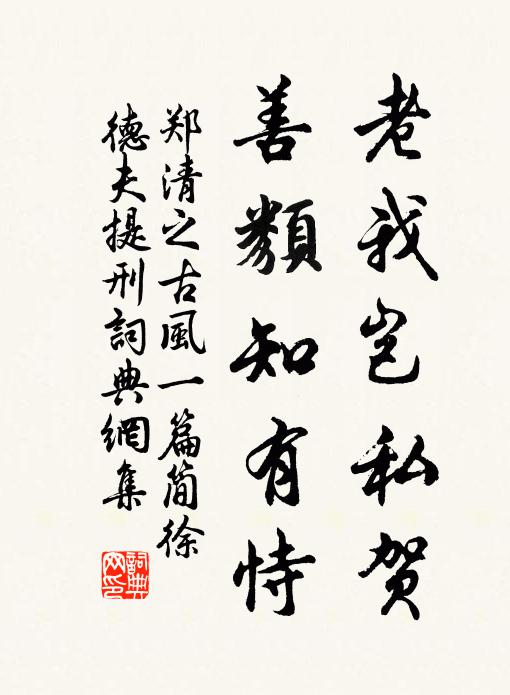 老我岂私贺
善類知有恃
郑清之古風一篇简徐
德夫提刑詞典網集
詞典网印